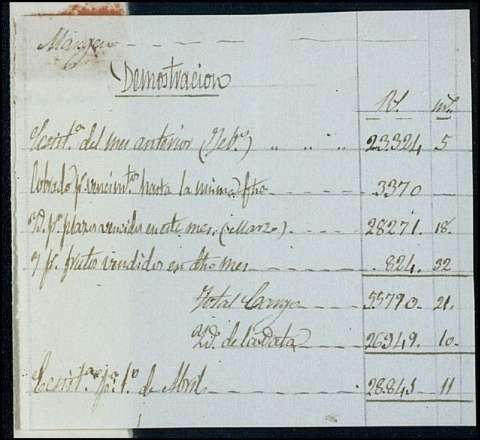 Margen
Demostracion
Rs. mrs.
Existª del mes anterior (Febº) 23324 5
Cobrado pr vencimtos hasta la misma fha 3370
Yd. pr plazos vencidos en este mes, (Marzo) 28271. 18.
Y pr frutos vendidos en dho mes 824. 32
Total Cargo 55790. 21.
Yd. de la Data 26949. 10
Existª pª 1º de Abril 28841 11